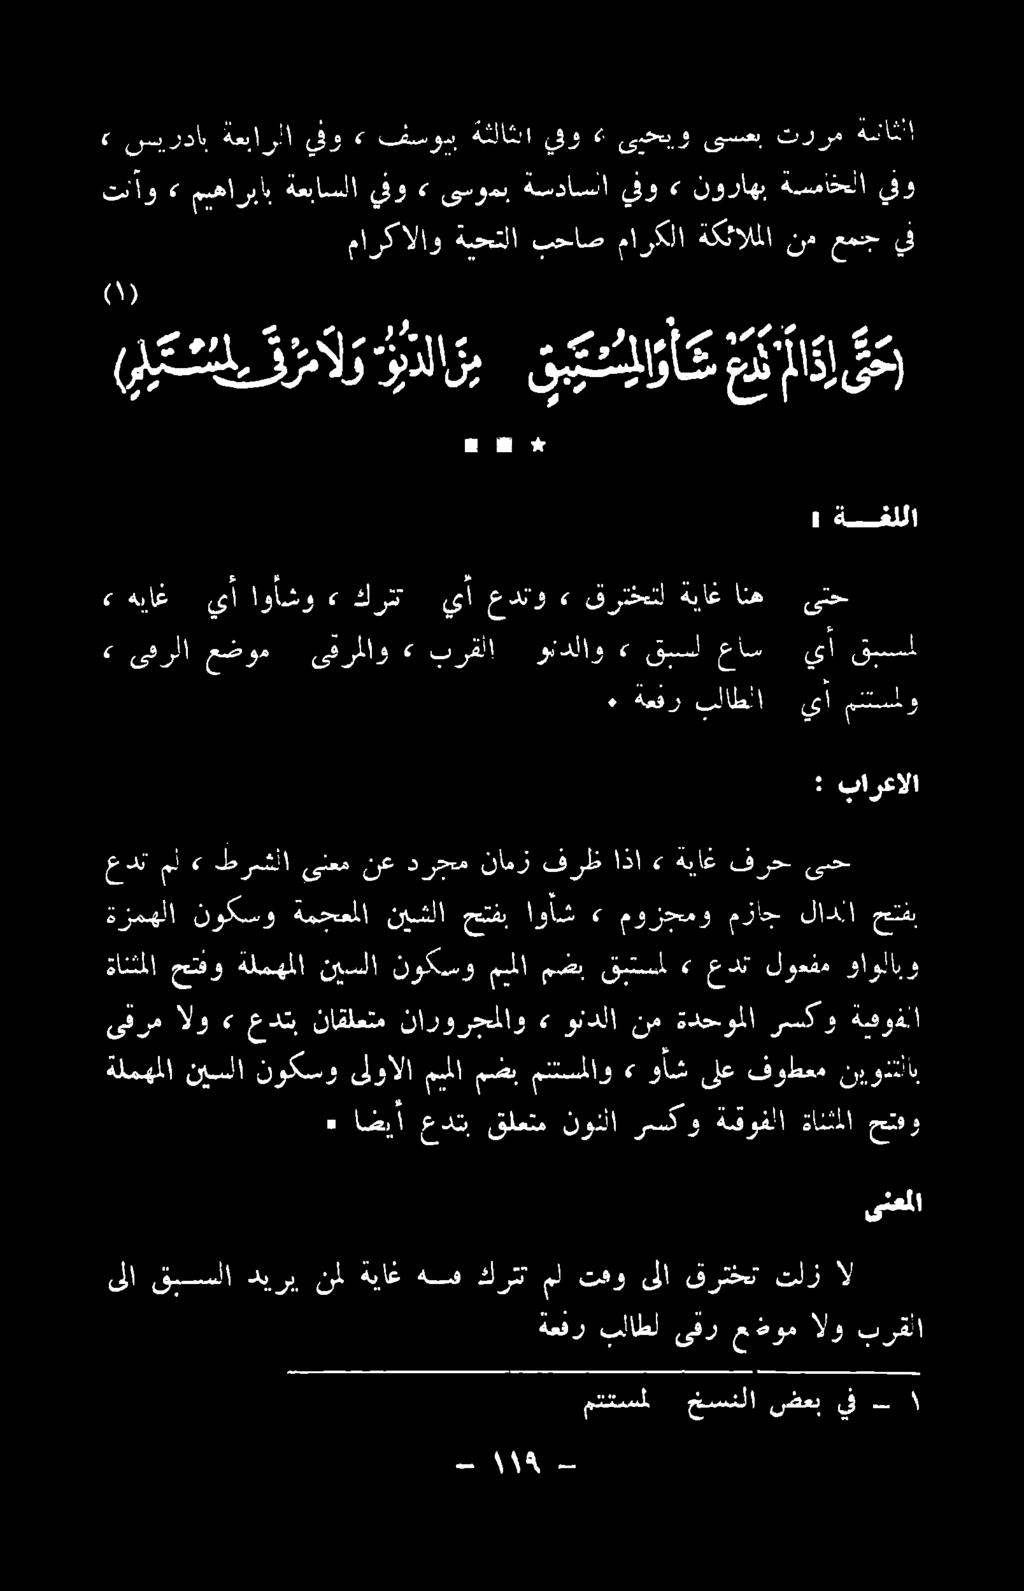 الثانية مررت بعيسى ويحيى ، وفي الثالثة بيوسف ، وفي الرابعة بادريس ،
وفي الخامسة بهارون ، وفي السادسة بموسى ، وفي السابعة بابراهيم ، وأنت
في جمع من الملائكة الكرام صاحب التحية والاكرام
(١)
(حَتَّى إِذَا لَمْ تَدَعْ شَأْوًا لِمُسْتَبِقٍ مِنَ الدُّنُوِّ وَلَا مَرْقًى لِمُسْتَلِمِ)
اللغـــة :
حتى هنا غاية لتخترق ، وتدع أي تترك ، وشأوا أي غايه ،
لمسبق أي ساع لسبق ، والدنو القرب ، والمرقى موضع الرقى ،
ولمستنم أي الطالب رفعة .
الاعراب :
حتى حرف غاية ، اذا ظرف زمان مجرد عن معنى الشرط ، لم تدع
بفتح الدال جازم ومجزوم ، شأوا بفتح الشين المعجمة وسكون الهمزة
وبالواو مفعول تدع ، لمستبق بضم الميم وسكون السين المهملة وفتح المثناة
الفوقية وكسر الموحدة من الدنو ، والمجروران متعلقان بتدع ، ولا مرقى
بالتنوين معطوف على شأو ، والمستنم بضم الميم الاولى وسكون السين المهملة
وفتح المثناة الفوقية وكسر النون متعلق بتدع أيضا .
المعنى
لا زلت تخترق الى وقت لم تترك فيـــه غاية لمن يريد الســـبق الى
القرب ولا موضع رقى لطالب رفعة
١ – في بعض النسخ لمستتم
– ١١٩ –